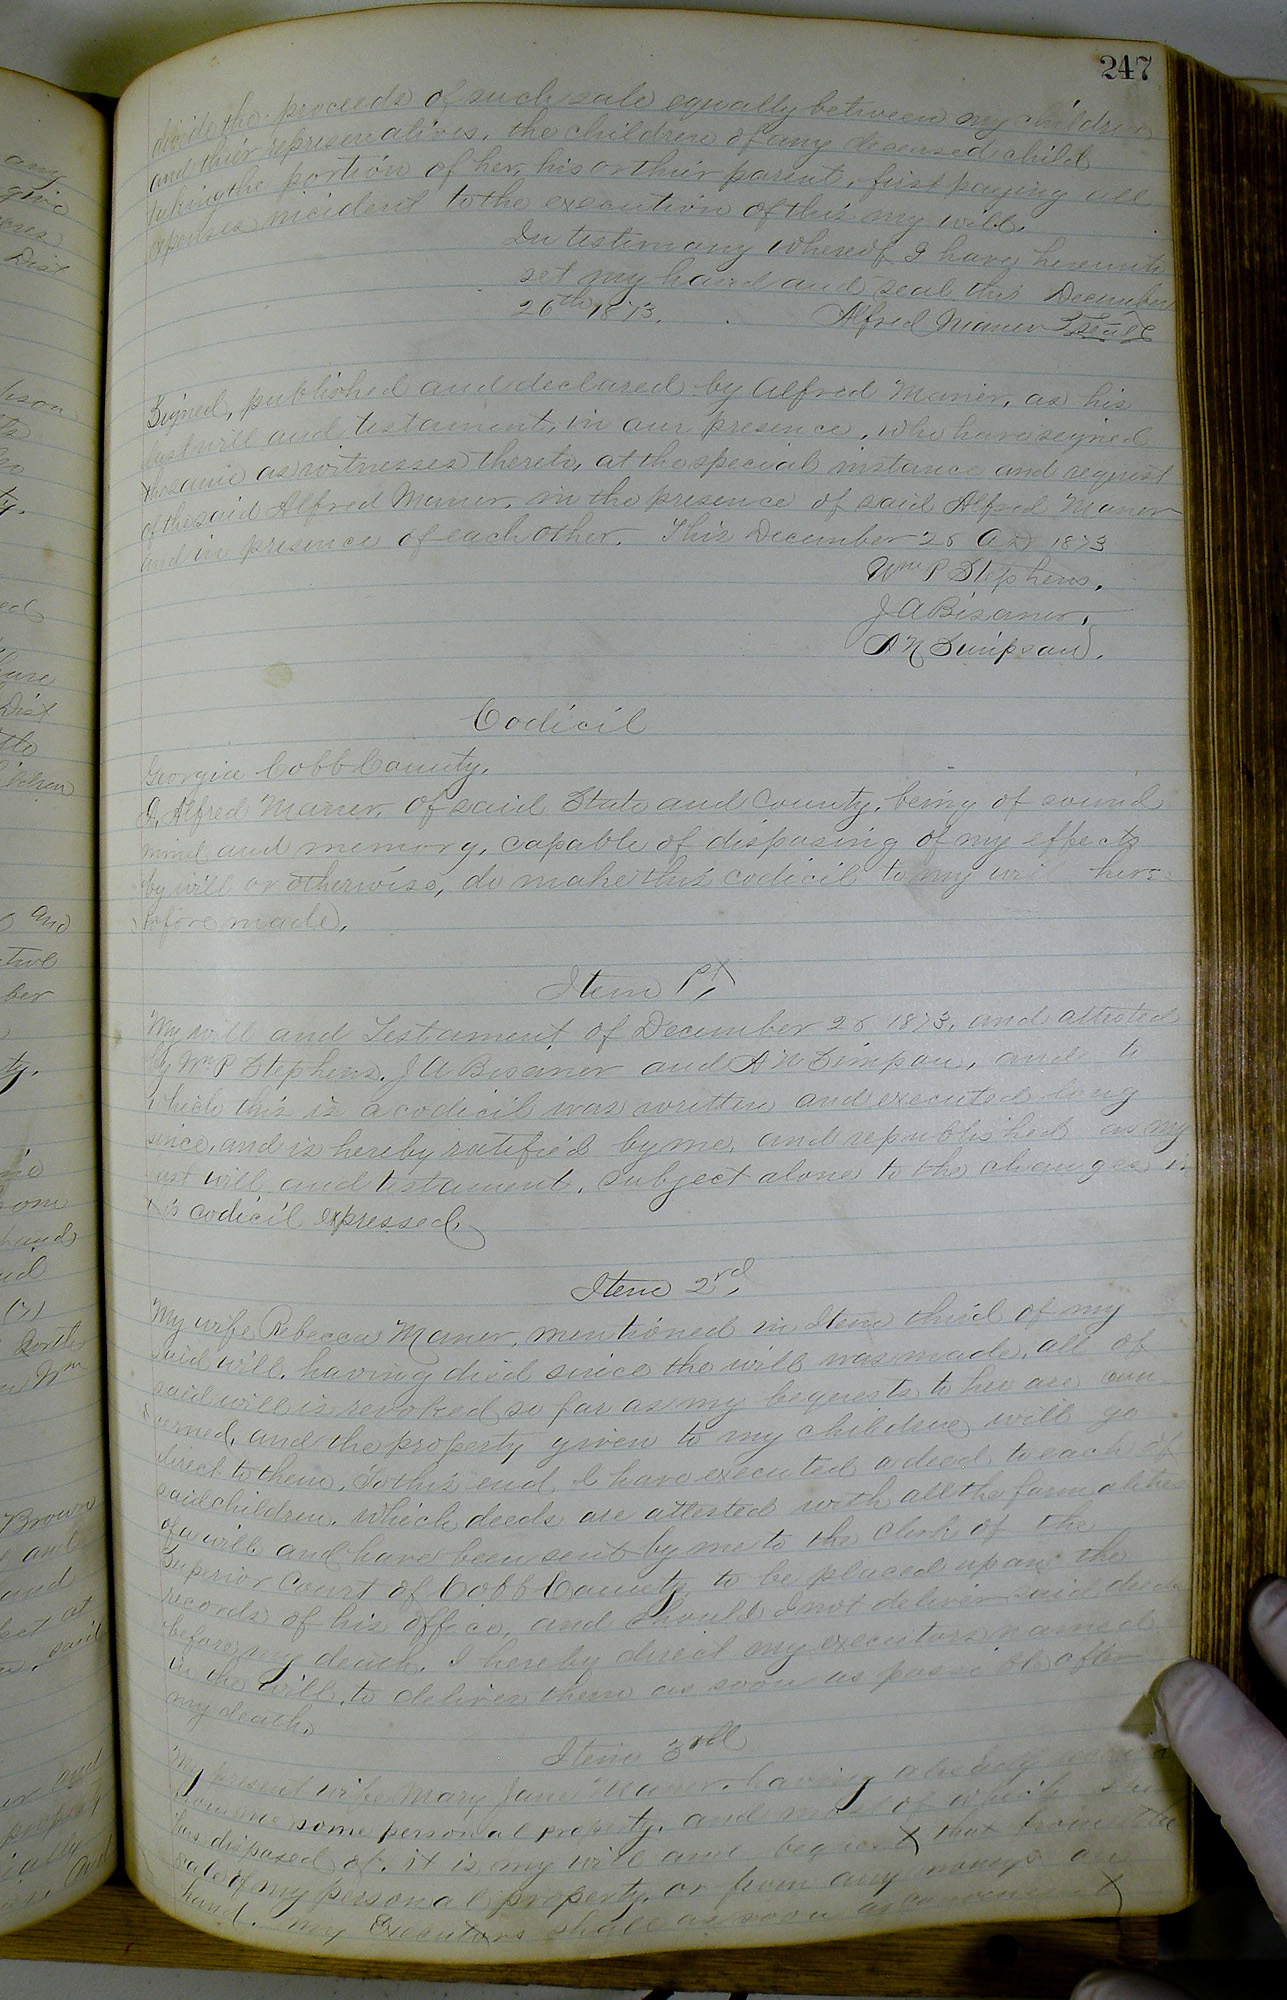 247
divide the proceeds of such sale equally between my children
and thier representatives, the children of any deseased child
taking the portion of her, his or thier parent, first paying all
expenses incident to the execution of this my will.
In testimony Whereof I have hereunto
set my hand and seal this December
26th 1873. Alfred Maner Seal
Signed, published and declared by Alfred Maner, as his
last will and testament, in our presence, who have signed
the same as witnesses thereto, at the special instance and request
of the said Alfred Maner, in the presence of said Alfred Maner
and in presence of each other. This December 26 AD 1873
Wm P Stephens.
J A Bisaner.
A N Simpson.
Codicil
Georgia Cobb County.
I, Alfred Maner, of said State and County, being of sound
mind and memory, capable of disposing of my effects
by will or otherwise, do make this codicil to my will here
tofore made.
Item 1st,
My will and Testament of December 26 1873, and attested
by Wm P Stephens, J A Bisaner and A N Simpson, and to
which this is a codicil was written and executed long
since, and is hereby ratified by me, and republished as my
last will and testament, subject alone to the changes in
this codicil expressed,
Item 2rd,
My wife, Rebecca Maner, mentioned in Item third of my
said will, having died since the will was made, all of
said will is revoked so far as my bequests to her are con
cerned, and the property given to my children will go
direct to them. To this end I have executed a deed to each of
said children, which deeds are attested with all the formalities
of a will and have been sent by me to the clerk of the
Superior Court of Cobb County to be placed upon the
records of his office, and should I not deliver said deeds
before my death, I hereby direct my executors named
in the will, to deliver them as soon as possible after
my death.
Item 3rd
My present wife Mary Jane Maner, having already
some personal property, and most of which she
has disposed of, it is my will and bequest that from the
sale of my personal property, or from any moneys on
hand, my Executors shall as soon as convenient